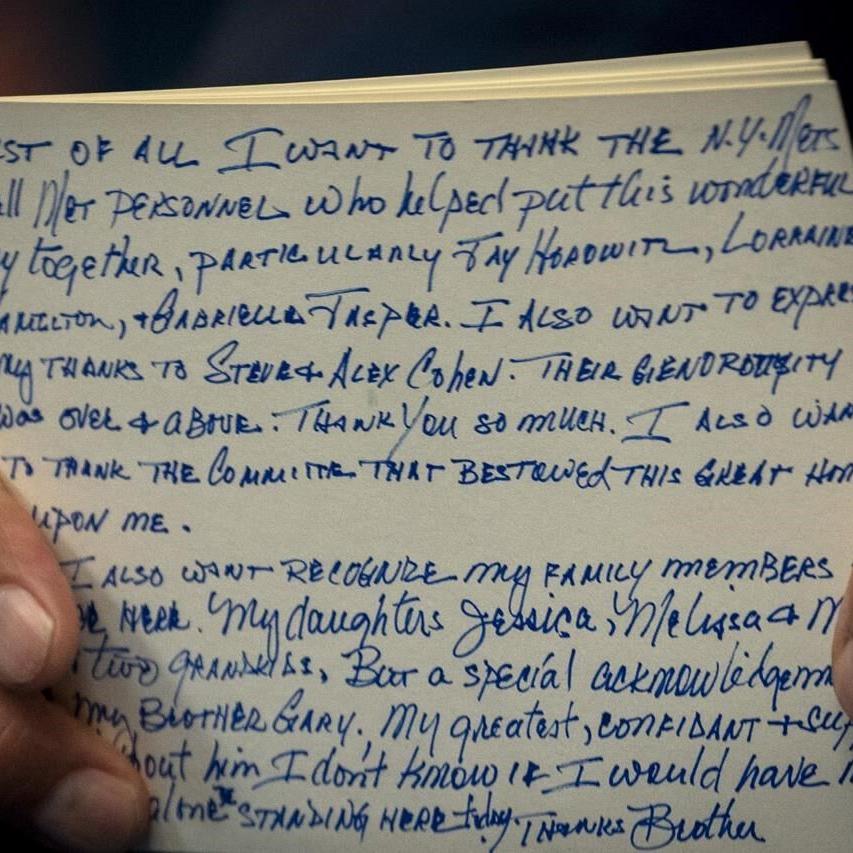 ST OF ALL I WANT TO THANK THE N.Y. Mets
all Met PERSONNEL who helped put this wonderful
y together, PARTICULARLY JAY HOROWITZ, LORRAINE
AMILTON, + GABRIELLE JASPER. I ALSO WANT TO EXPRE
my THANKS TO STEVE + ALEX Cohen. THEIR
was over + above. THANK you so much. I ALSO WAN
TO THANK THE COMMITTE THAT BESTOWED THIS GREAT HON
UPON ME.
I ALSO WANT RECOGNIZE my FAMILY members
HERE. My daughters Jessica, Melissa + M
two GRANDKIDS. But a special acknowledgem
my BROTHER GARY. My greatest, CONFIDANT + sup
hout him I don't know IF I would have
alone STANDING HERE today. THANKS Brother